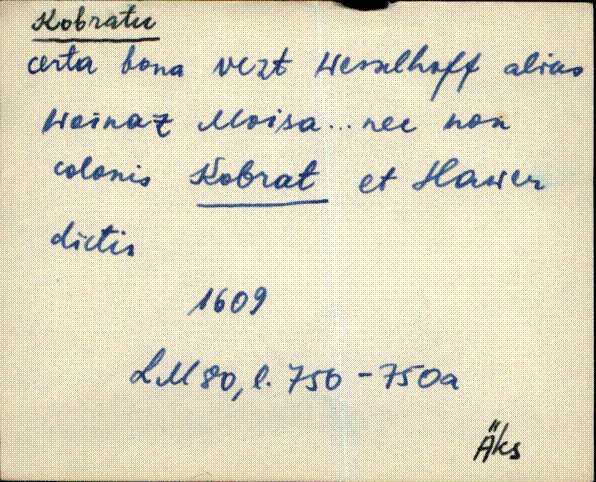 Kobratu
certa bona vezt Wesselhoff alias
Woinaz Moisa... nec non
colonis Kobrat et Hawer
dictis
1609
LM 80, l. 750-750a
Äks